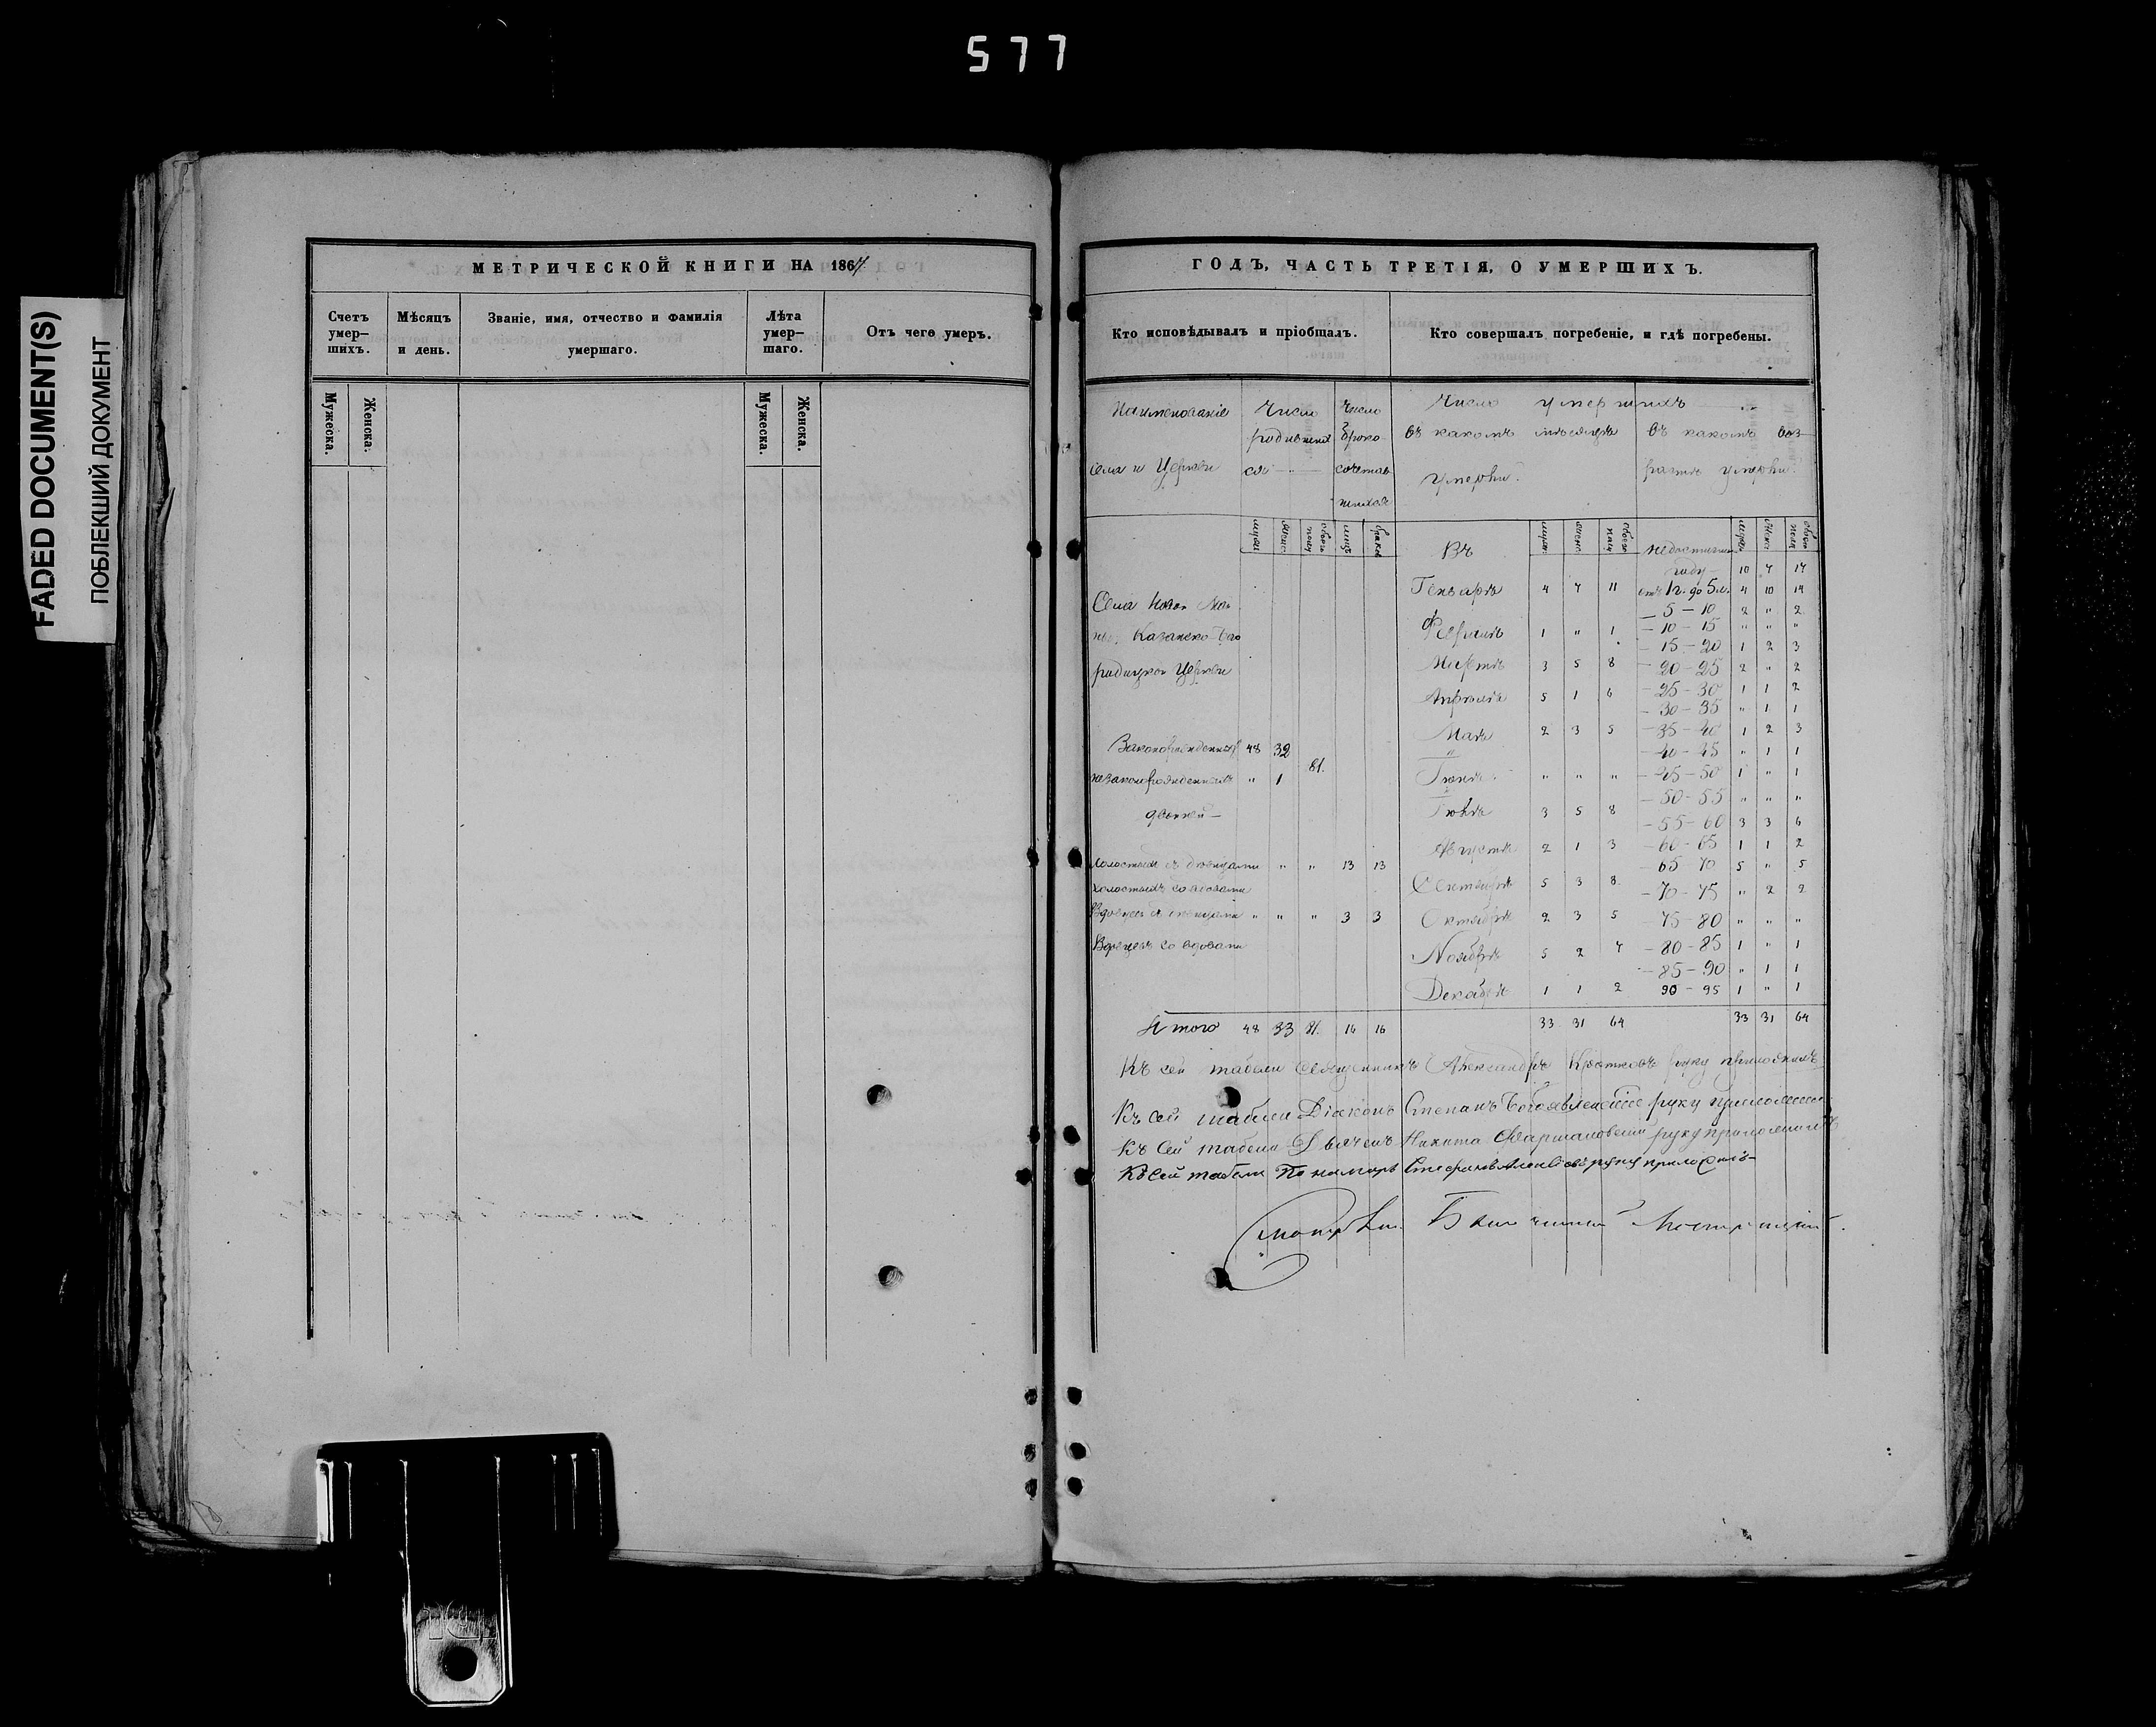 577
FADED DOCUMENT(S)
ПОБЛЕКШИЙ ДОКУМЕНТ
МЕТРИЧЕСКОЙ КНИГИ НА 1867
Счетъ умер-шихъ.
Мѣсяцъ и день.
Званіе, имя, отчество и фамилія умершаго.
Лѣта умер-шаго.
Отъ чего умеръ.
Мужеска.
Женска.
Мужеска.
Женска.
ГОДЪ, ЧАСТЬ ТРЕТІЯ, О УМЕРШИХЪ.
Кто исповѣдывалъ и пріобщалъ.
Кто совершалъ погребеніе, и гдѣ погребены.
Наименованіе села и Церкви
Число родившихся
Число броко-сочетав-шихся
Число умершихъ
въ какомъ мѣсяцѣ умерли.
въ какомъ воз-растѣ умерли.
Въ
недостигш. году 10 7 17
Генварѣ 4 7 11
отъ 1г. до 5 л. 4 10 14
Села Новой
5 - 10 2 " 2
Февралѣ 1 " 1
10 - 15 " " "
Казанско-Бого
15 - 20 1 2 3
родицкой Церкви
Мартѣ 3 5 8
20 - 25 2 " 2
Апрѣлѣ 5 1 6
25 - 30 1 1 2
30 - 35 " 1 1
Маѣ 2 3 5
35 - 40 1 2 3
Законорожденныхъ 48 32
40 - 45 " 1 1
81.
незаконорожденныхъ " 1
Іюнѣ " " "
45 - 50 1 " 1
50 - 55 " " "
двойней —
Іюлѣ 3 5 8
55 - 60 3 3 6
Августѣ 2 1 3
60 - 65 1 1 2
Холостыхъ съ дѣвицами " " 13 13
65 70 5 " 5
Холостыхъ со вдовами
Сентябрѣ 5 3 8
70 - 75 " 2 2
Вдовцевъ съ дѣвицами " " " 3 3
Октябрѣ 2 3 5
75 - 80 " " "
Вдовцевъ со вдовами
Ноябрѣ 5 2 7
80 - 85 1 " 1
85 - 90 " 1 1
Декабрѣ 1 1 2
90 - 95 1 " 1
Итого 48 33 81. 16 16 33 31 64 33 31 64
Къ сей табели Священникъ Александръ руку приложилъ
Къ сей табели Діаконъ Степанъ Богоявленскій руку приложилъ
Къ сей табели Дьячекъ Никита руку приложилъ
Къ сей табели Пономарь Стефанъ руку приложилъ